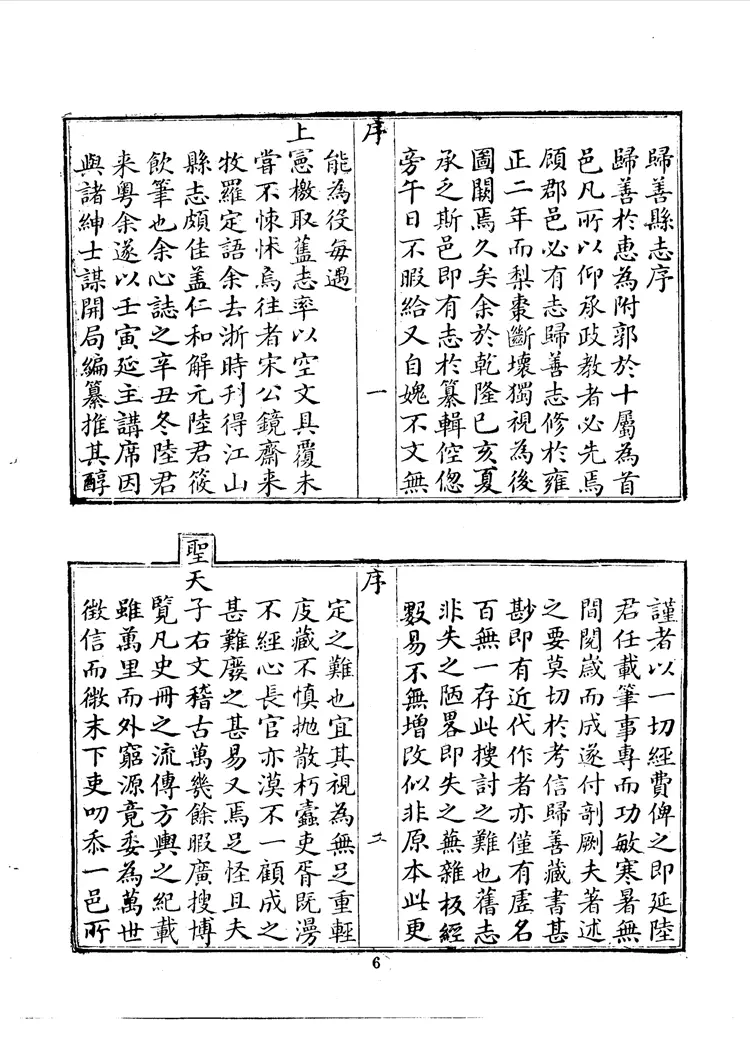 歸善縣志序
歸善於惠為附郭於十屬為首
邑凡所以仰承政教者必先焉
顧郡邑必有志歸善志修於雍
正二年而梨棗斷壞獨視為後
圖闕焉久矣余於乾隆己亥夏
承乏斯邑即有志於纂輯倥偬
旁午日不暇給又自媿不文無
序
一
能為役每遇
上憲檄取舊志率以空文具覆未
嘗不悚怵焉往者宋公鏡齋來
牧羅定語余去浙時刊得江山
縣志頗佳盖仁和解元陸君筱
飲筆也余心誌之辛丑冬陸君
来粤余遂以壬寅延主講席因
與諸紳士謀開局編纂推其醇
謹者以一切經費俾之即延陸
君任載筆事專而功敏寒暑無
間閱歲而成遂付剞劂夫著述
之要莫切於考信歸善藏書甚
尠即有近代作者亦僅有虛名
百無一存此搜討之難也舊志
非失之陋畧即失之蕪雜板經
數易不無增改似非原本此更
序
二
定之難也宜其視為無足重輕
庋藏不慎拋散朽蠹吏胥既漫
不經心長官亦漠不一顧成之
甚難廢之甚易又焉足怪且夫
聖天子右文稽古萬幾餘暇廣搜博
覽凡史冊之流傳方輿之紀載
雖萬里而外窮源竟委為萬世
徵信而微末下吏叨忝一邑所
6